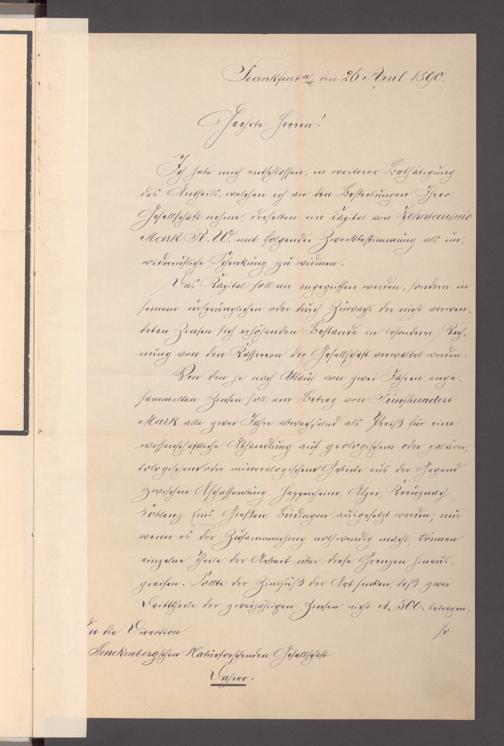 Frankfurt a/M den 26 April 1890.
Geehrte Herren!
Ich habe mich entschlossen, in weiterer Bethätigung
des Antheils, welchen ich an den Bestrebungen Ihrer
Gesellschaft nehme, derselben ein Kapital von Zehntausend
Mark R. W. mit folgender Zweckbestimmung als un-
widerrufliche Schenkung zu widmen.
Das Kapital soll nie angegriffen werden, sondern in
seinem ursprünglichen oder durch Zuwachs der nicht verwen-
deten Zinsen sich erhöhenden Bestande in besonderer Rech-
nung von den Kassierern der Gesellschaft verwaltet werden.
Von den je nach Ablauf von zwei Jahren ange-
sammelten Zinsen soll ein Betrag von Fünfhundert
Mark alle zwei Jahre abwechselnd als Preiß für eine
wissenschaftliche Abhandlung auf geologischem oder paläon-
tologischem oder mineralogischem Gebiete aus der Gegend
zwischen Aschaffenburg Heppenheim, Alzei, Kreuznach,
Koblenz, Ems, Gießen, Büdingen ausgesetzt werden; nur
wenn es der Zusammenhang nothwendig macht, können
einzelne Theile der Arbeit über diese Grenzen hinaus-
greifen. Sollte der Zinsfuß der Art sinken, daß zwei
Dritttheile der zweijährigen Zinsen nicht M. 500. betragen,
so
An die Direction
Senckenbergischen Naturforschenden Gesellschaft
Dahier.